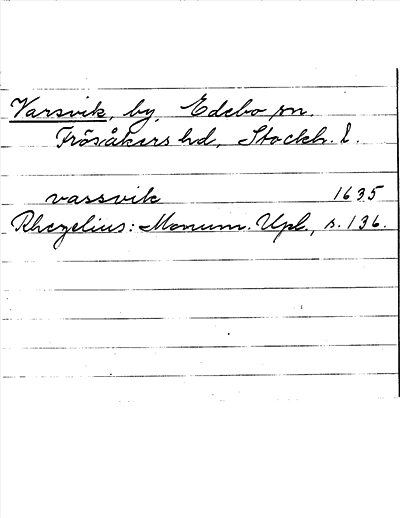 Varsvik, by, Edebo sn.
Frösåkers hd, Stockh. l.
vassvik 1635
Rhezelius: Monum. Upl., s. 136.